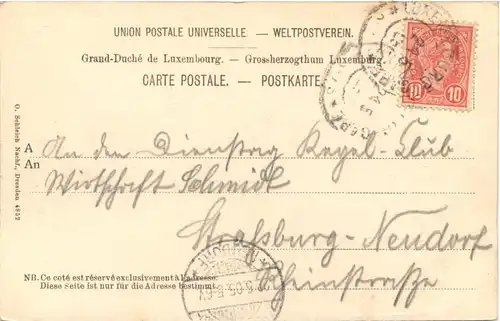 UNION POSTALE UNIVERSELLE. — WELTPOSTVEREIN.
Grand-Duché de Luxembourg. — Grossherzogthum Luxemburg.
CARTE POSTALE. — POSTKARTE.
10 10
O. Schleich Nachf., Dresden 4852
A An den Dienstag Kegel-Club
An
Wirtschaft Schmidt
Straßburg-Neudorf
Rheinstraße
NB. Ce coté est réservé exclusivement à l'adresse.
Diese Seite ist nur für die Adresse bestimmt.